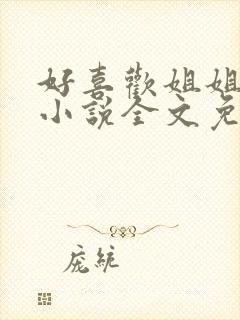 好喜歡姐姐
小說全文免
庞統